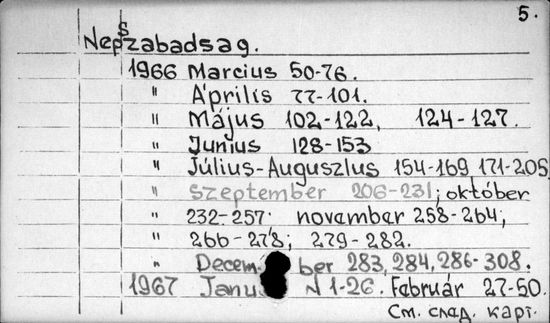 5.
NepSzabadsag.
1966 Marcius 50-76.
" Április 77-101.
" Május 102-122, 124-127.
" Junius 128-153
" Július-Auguszlus 154-169 171-205
" Szeptember 206-231; október
" 232-257. november 258-264;
" 266-278; 279-282.
" Decem ber 283, 284, 286-308.
1967 Janu 1-26. Február 27-50.
См. след. карт.